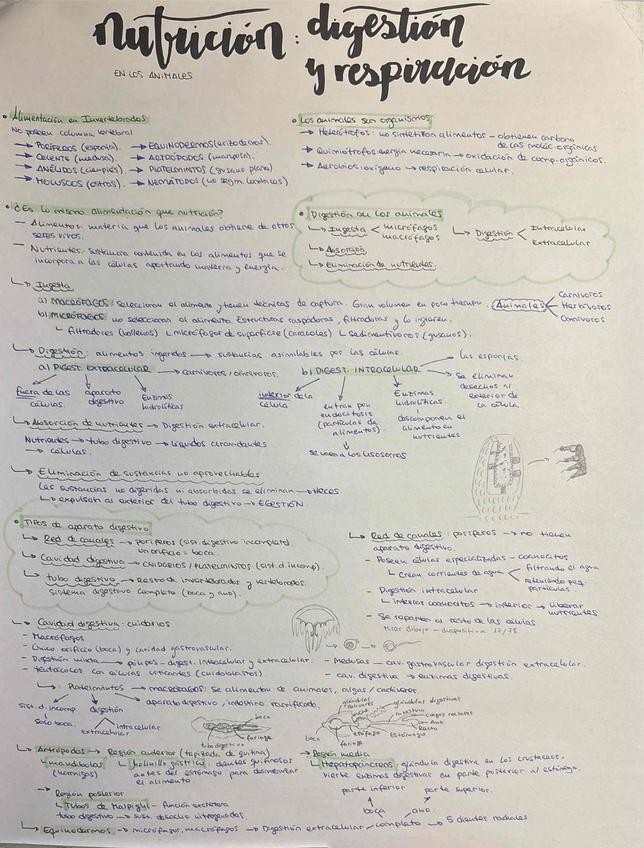 nutrición: digestión
y respiración
EN LOS ANIMALES
• Alimentación en Invertebrados
No poseen columna vertebral
→ PORÍFEROS (esponja). → EQUINODERMOS (erizo de mar).
→ CELENTE (medusa). → ARTRÓPODOS (mariposa).
→ ANÉLIDOS (ciempiés) → PLATELMINTOS (gusano plano)
→ MOLUSCOS (ostras). → NEMÁTODOS (no segm. lombrices)
• Los animales son organismos
→ Heterótrofos: no sintetizan alimentos – obtienen carbono
de las moléc. orgánicas
→ Quimiótrofos: energía necesaria → oxidación de comp. orgánicos.
→ Aerobios: oxígeno → respiración celular.
• ¿Es lo mismo alimentación que nutrición?
– Alimentos: materia que los animales obtiene de otros
seres vivos.
– Nutrientes: sustancia contenida en los alimentos que se
incorpora a las células aportando materia y energía.
• Digestión en los animales
↳ Ingesta < micrófagos
macrófagos
↳ Digestión < Intracelular
extracelular
↳ Absorción
↳ Eliminación de nutrientes.
↳ Ingesta
a) MACRÓFAGOS: Seleccionan el alimento y tienen técnicas de captura. Gran volumen en poco tiempo. Animales
Carnívoros
Herbívoros
Omnívoros
b) MICRÓFAGOS: no seleccionan al alimento. Estructuras raspadoras, filtradoras y lo ingieren.
↳ filtradores (ballenas) ↳ micrófagos de superficie (caracoles) ↳ sedimentívoros (gusanos).
↳ Digestión: alimentos ingeridos → sustancias asimilables por las células.
a) DIGEST. EXTRACELULAR → carnívoros/omnívoros.
fuera de las células. aparato digestivo Enzimas hidrolíticas
b) DIGEST. INTRACELULAR → las esponjas
interior de la célula
entran por endocitosis (partículas de alimentos)
se unen a los lisosomas
Enzimas hidrolíticas.
descomponen el alimento en nutrientes
se eliminan desechos al exterior de la célula
↳ Absorción de nutrientes → Digestión extracelular.
Nutrientes → tubo digestivo → líquidos circundantes
→ células.
↳ Eliminación de sustancias no aprovechables
Las sustancias no digeridas ni absorbidas se eliminan → HECES
↳ expulsan al exterior del tubo digestivo → EGESTIÓN
• Tipos de aparato digestivo
↳ Red de canales → poríferos (sist. digestivo incompleto)
un orificio = boca.
↳ Cavidad digestiva → CNIDARIOS/PLATELMINTOS (sist. d incomp).
↳ tubo digestivo → Resto de invertebrados y vertebrados.
sistema digestivo completo (boca y ano).
↳ Red de canales: poríferos → no tienen
aparato digestivo.
– Poseen células especializadas – coanocitos
↳ Crean corrientes de agua < filtrando el agua
reteniendo peq. partículas.
– Digestión intracelular
↳ interior coanocitos → interior → liberar
nutrientes
– Se reparten al resto de las células
Mirar dibujo – diapositiva 17/78
↳ Cavidad digestiva: cnidarios
– Macrófagos
– Único orificio (boca) y cavidad gastrovascular.
– Digestión mixta → pólipos – digest. intracelular y extracelular.
– tentáculos con células urticantes (cnidoblastos)
– Medusas – cav. gastrovascular digestión extracelular.
– cav. digestiva → enzimas digestivas.
↳: Platelmintos → macrófagos: Se alimentan de animales, algas / cadáveres.
sist. d. incomp.
solo boca.
digestión
extracelular intracelular
aparato digestivo / intestino ramificado.
boca
faringe
tubo digestivo
glándulas salivares
boca
faringe
esófago
Estómago
glándulas digestivas
intestino
Ciegos rectales
Ano
Recto
↳ Artrópodos → Región anterior (tapizada de quitina)
↳ mandíbulas
(hormigas)
↳ molinillo gástrico: dientes quitinosos
antes del estómago para desmenuzar
el alimento.
→ Región media
↳ Hepatopáncreas: glándula digestiva en los crustáceos.
vierte enzimas digestivas en parte posterior al estómago.
→ Región posterior
↳ Tubos de Malpighi – función excretora
tubo digestivo → sust. desecho nitrogenadas.
parte inferior parte superior.
boca ano
↳ Equinodermos → micrófagos, macrófagos → Digestión extracelular – completo → 5 dientes radiales